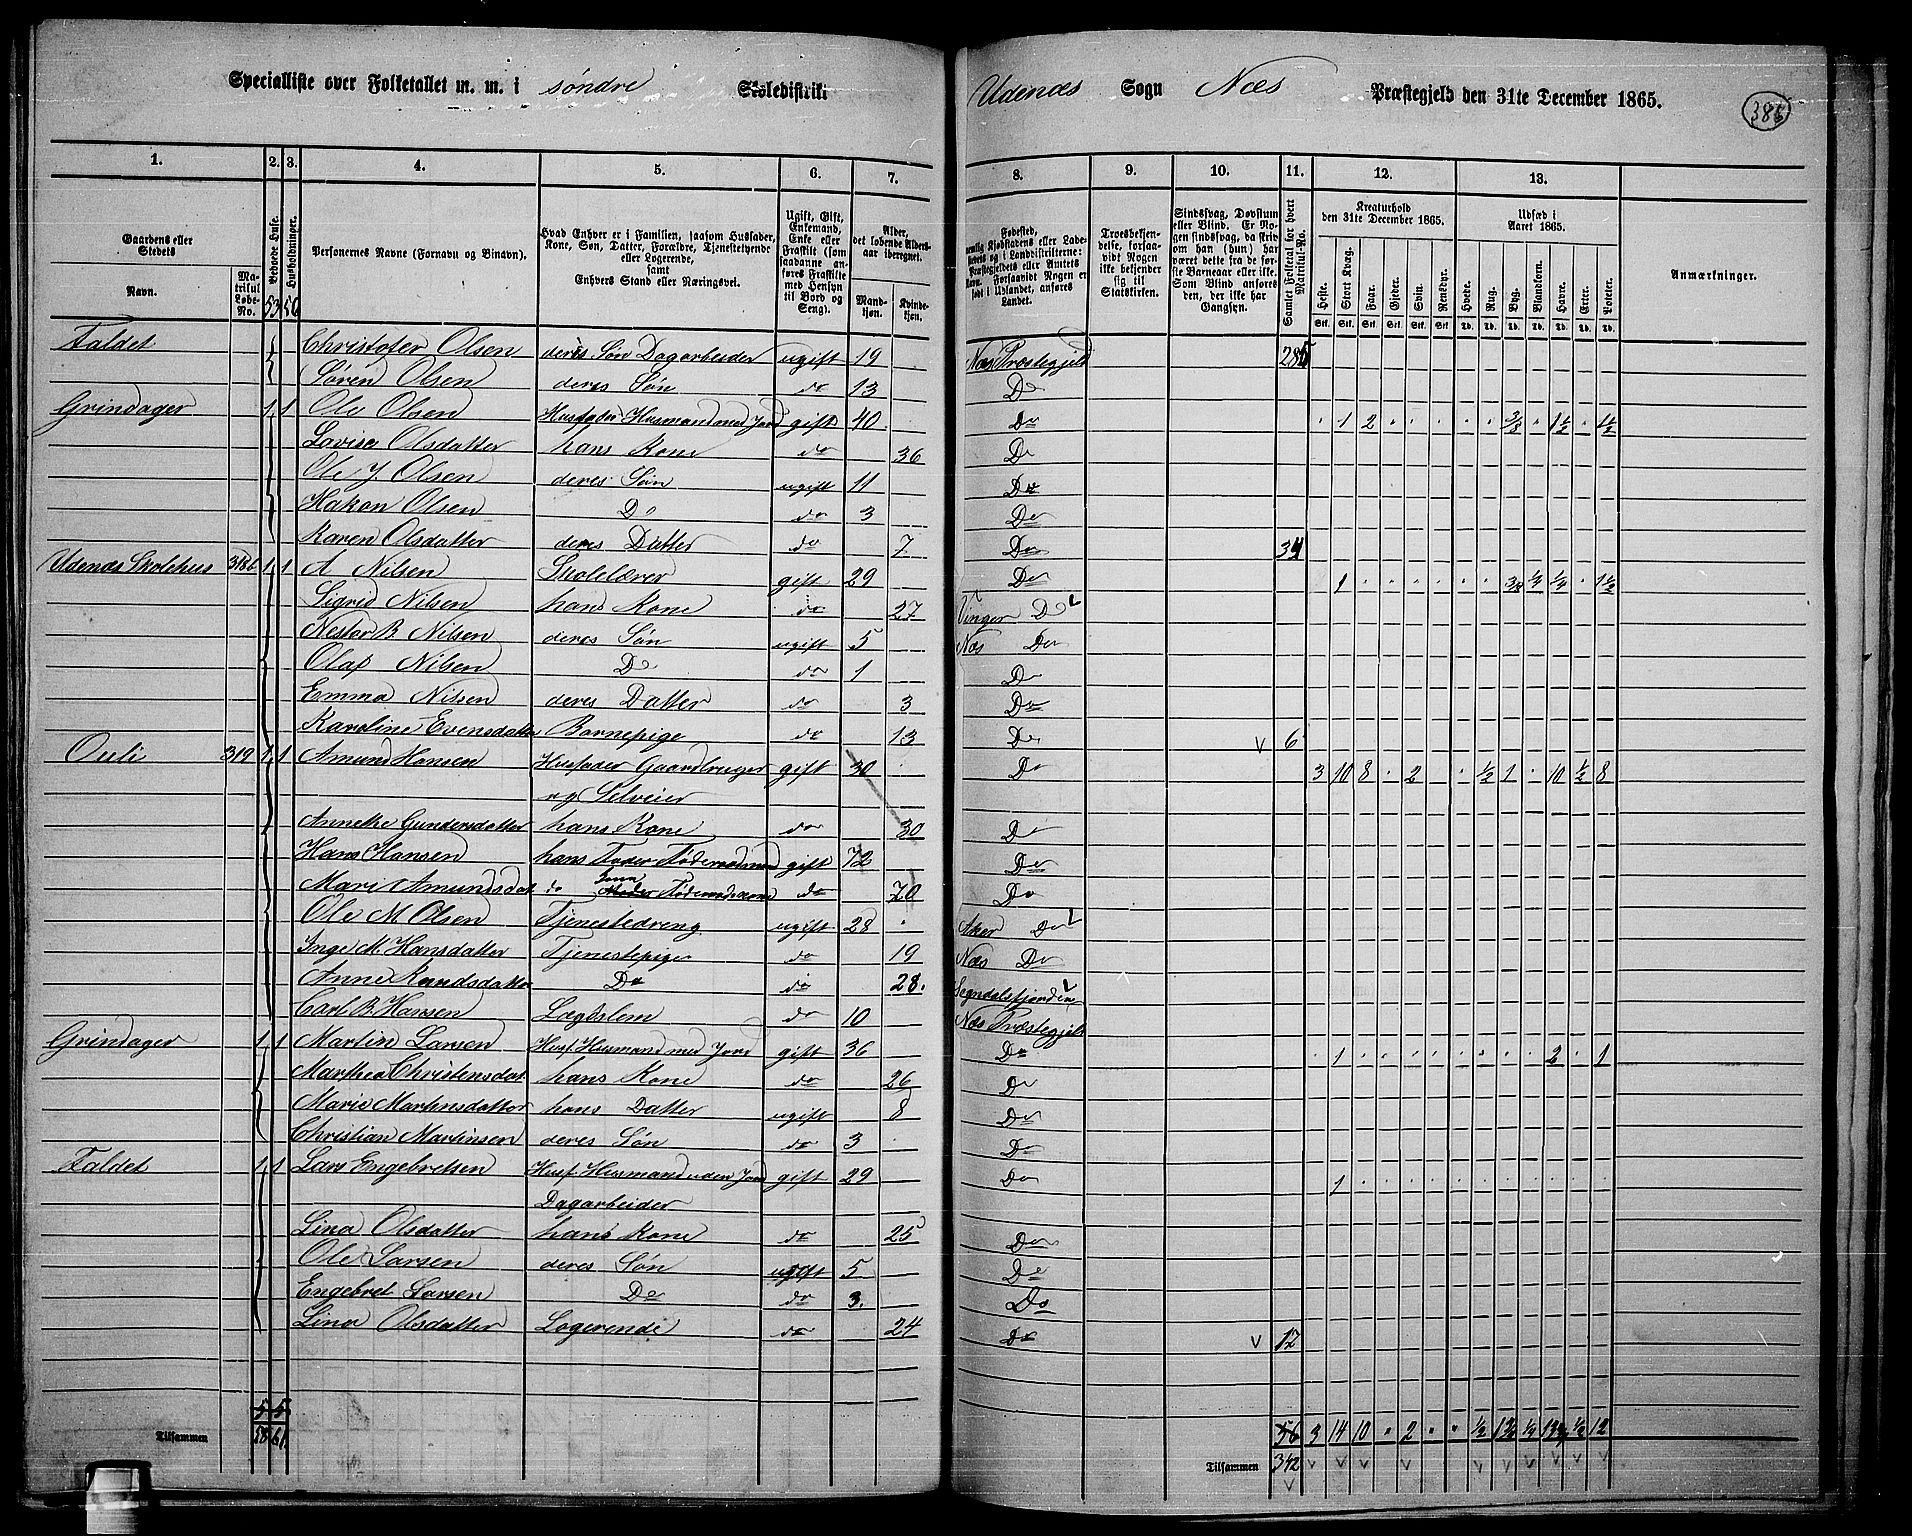 Specialliste over Folketallet m. m. i søndre Skoledistrik. Udenæs Sogn Næs Præstegjeld den 31te December 1865.
1. 2. 3. 4. 5. 6. 7. 8. 9. 10. 11. 12. 13.
Gaardens eller Stedets
Navn. Matrikul Løbe-No.
Beboede Huse. 53
Husholdninger. 56
Personernes Navne (Fornavn og Binavn).
Hvad Enhver er i Familien, saasom Husfader, Kone, Søn, Datter, Forældre, Tjenestetyende eller Logerende, samt Enhvers Stand eller Næringsvei.
Ugift, Gift, Enkemand, Enke eller Fraskilt (som saadanne anføres Fraskilte med Hensyn til Bord og Seng).
Alder, det løbende Alders-aar iberegnet.
Mandkjøn. Kvindekjøn.
Troesbekjendelse, forsaavidt Nogen ikke bekjender sig til Statskirken.
Sindssvag, Døvstum eller Blind. Er Nogen sindssvag, da skrives om han (hun) har været det fra de første Barneaar eller ikke. Som Blind anføres den, der ikke har Gangsyn.
Samlet Folketal for hvert Matrikul-No.
Kreaturhold den 31te December 1865.
Heste. Stort Kvæg. Faar. Gjeder. Svin. Rensdyr.
Udsæd i Aaret 1865.
Hvede. Rug. Byg. Blandkorn. Havre. Erter. Poteter.
Anmærkninger.
Faldet Christofer Olsen deres Søn Dagarbeider ugift 19 Næs Præstegjeld 285
Søren Olsen deres Søn do 13 Do
Grindager 1 1 Ole Olsen Husfader Husmand med Jord gift 40 Do 1 2 3/8 1½ 1½
Lovise Olsdatter hans Kone do 36 Do
Ole J. Olsen deres Søn ugift 11 Do
Hakon Olsen Do do 3 Do
Karen Olsdatter deres Datter do 7 Do 34
Udenæs Skolehus 318b 1 1 A Nilsen Skolelærer gift 29 Do 1 3/8 ¼ ¼ 1½
Sigrid Nilsen hans Kone do 27 Vinger Do
Nestor B. Nilsen deres Søn ugift 5 Næs Do
Olaf Nilsen Do do 1 Do
Emma Nilsen deres Datter do 3 Do
Karoline Evensdatter Barnepige do 13 Do v 6
Ouli 319 1 1 Amund Hansen Husfader Gaardbruger gift 30 Do 3 10 8 2 ½ 1 10 ½ 8
og Selveier
Annethe Gundersdatter hans Kone do 30 Do
Hans Hansen hans Fader Føderaadsmand gift 72 Do
Mari Amundsdat do Føderaadskone do 70 Do
Ole M. Olsen Tjenestedreng ugift 28 Aker Do
Inge M. Hansdatter Tjenestepige do 19 Næs Do
Anne Do do 28. Sogndalsfjorden
Carl B. Hansen Lægdslem do 10 Næs Præstegjeld
Grindager 1 1 Martin Larsen Husf. Husmand med Jord gift 36 Do 1 2 1
Marthea Christensdat hans Kone do 26 Do
Marie Martinsdatter hans Datter ugift 8 Do
Christian Martinsen deres Søn do 3 Do
Faldet 1 1 Lars Engebretsen Husf. Husmand uden Jord gift 29 Do 1
Dagarbeider
Lina Olsdatter hans Kone do 25 Do
Ole Larsen deres Søn ugift 5 Do
Engebret Larsen Do do 3. Do
Lina Olsdatter Logerende do 24 Do v 12
5 5
Tilsammen 58 61. 56 3 14 10 2 ½ ¼ ½ 12
Tilsammen 342